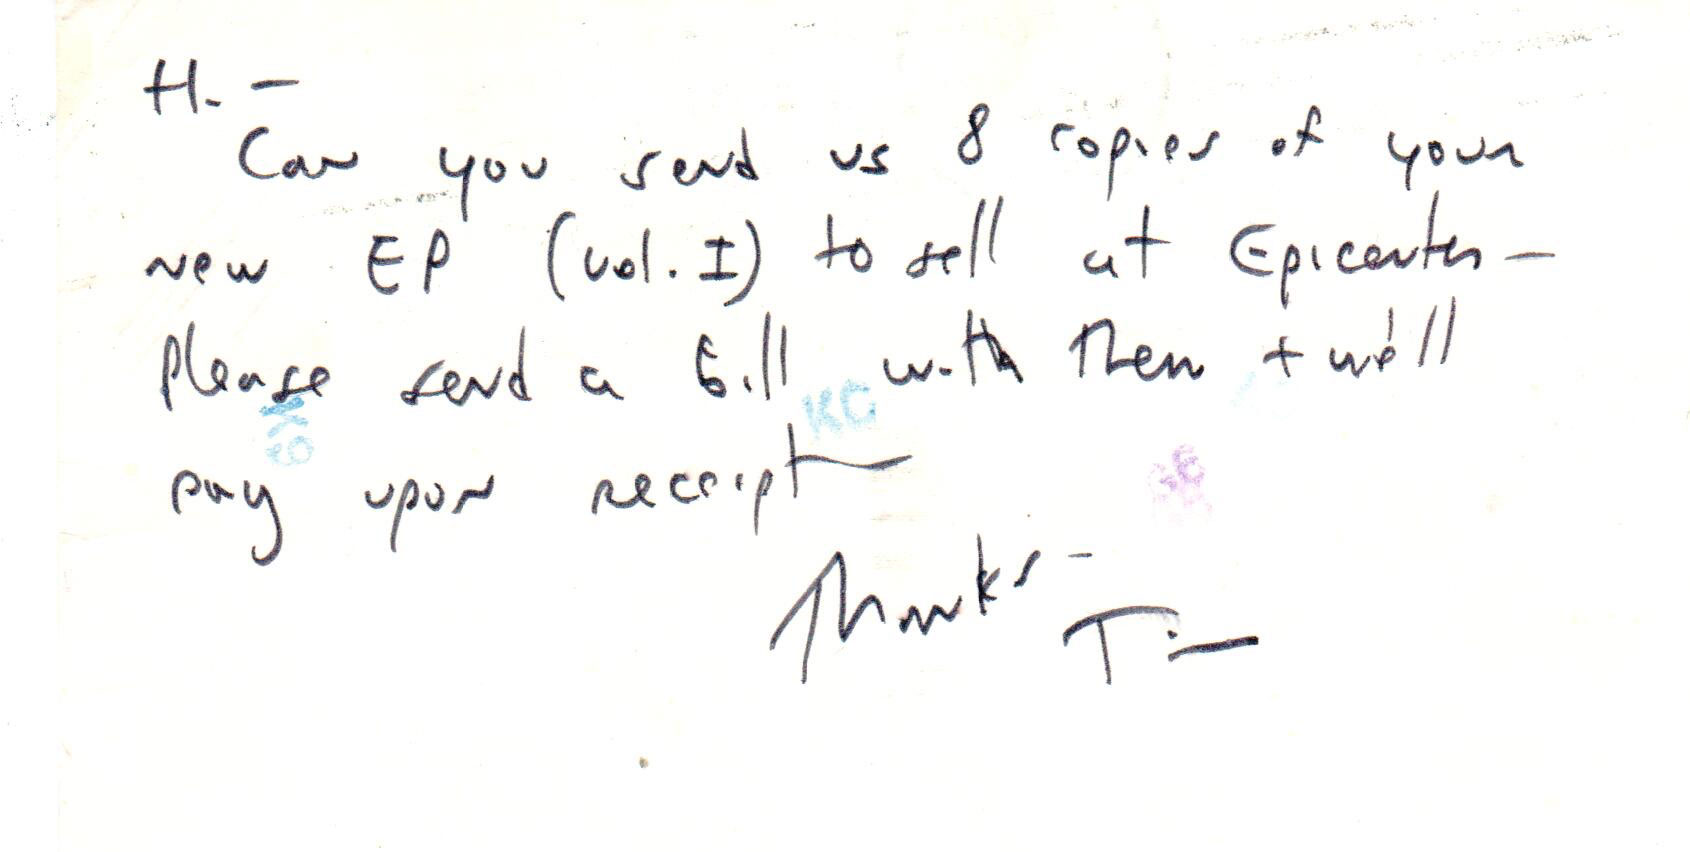 Hi -
Can you send us 8 copies of your
new EP (vol. I) to sell at Epicenter -
Please send a bill with them + we'll
pay upon receipt
Thanks -
Tim
KC